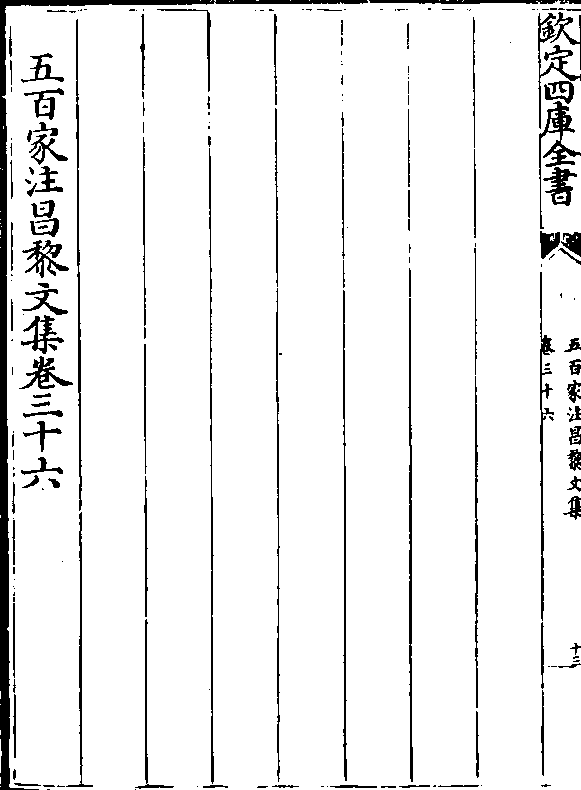 欽定四庫全書
五百家注昌黎文集
卷三十六
十三
五百家注昌黎文集卷三十六